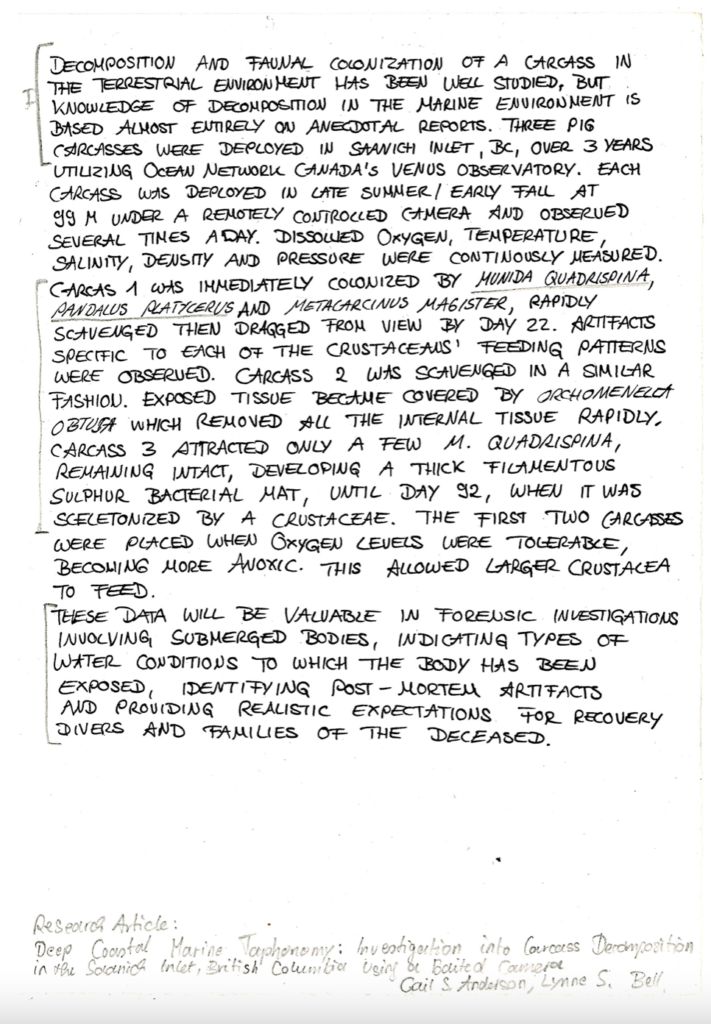 DECOMPOSITION AND FAUNAL COLONIZATION OF A CARCASS IN
THE TERRESTRIAL ENVIRONMENT HAS BEEN WELL STUDIED, BUT
I KNOWLEDGE OF DECOMPOSITION IN THE MARINE ENVIRONMENT IS
BASED ALMOST ENTIRELY ON ANECDOTAL REPORTS. THREE PIG
CARCASSES WERE DEPLOYED IN SAANICH INLET, BC, OVER 3 YEARS
UTILIZING OCEAN NETWORK CANADA'S VENUS OBSERVATORY. EACH
CARCASS WAS DEPLOYED IN LATE SUMMER/EARLY FALL AT
99 M UNDER A REMOTELY CONTROLLED CAMERA AND OBSERVED
SEVERAL TIMES A DAY. DISSOLVED OXYGEN, TEMPERATURE,
SALINITY, DENSITY AND PRESSURE WERE CONTINOUSLY MEASURED.
CARCAS 1 WAS IMMEDIATELY COLONIZED BY MUNIDA QUADRISPINA,
PANDALUS PLATYCERUS AND METACARCINUS MAGISTER, RAPIDLY
SCAVENGED THEN DRAGGED FROM VIEW BY DAY 22. ARTIFACTS
SPECIFIC TO EACH OF THE CRUSTACEANS' FEEDING PATTERNS
WERE OBSERVED. CARCASS 2 WAS SCAVENGED IN A SIMILAR
FASHION. EXPOSED TISSUE BECAME COVERED BY ORCHOMENELLA
OBTUSA WHICH REMOVED ALL THE INTERNAL TISSUE RAPIDLY.
CARCASS 3 ATTRACTED ONLY A FEW M. QUADRISPINA,
REMAINING INTACT, DEVELOPING A THICK FILAMENTOUS
SULPHUR BACTERIAL MAT, UNTIL DAY 92, WHEN IT WAS
SCELETONIZED BY A CRUSTACEAE. THE FIRST TWO CARCASSES
WERE PLACED WHEN OXYGEN LEVELS WERE TOLERABLE,
BECOMING MORE ANOXIC. THIS ALLOWED LARGER CRUSTACEA
TO FEED.
THESE DATA WILL BE VALUABLE IN FORENSIC INVESTIGATIONS
INVOLVING SUBMERGED BODIES, INDICATING TYPES OF
WATER CONDITIONS TO WHICH THE BODY HAS BEEN
EXPOSED, IDENTIFYING POST-MORTEM ARTIFACTS
AND PROVIDING REALISTIC EXPECTATIONS FOR RECOVERY
DIVERS AND FAMILIES OF THE DECEASED.
Research Article:
Deep Coastal Marine Taphonomy: Investigation into Carcass Decomposition
in the Saanich Inlet, British Columbia Using a Baited Camera
Gail S. Anderson, Lynne S. Bell